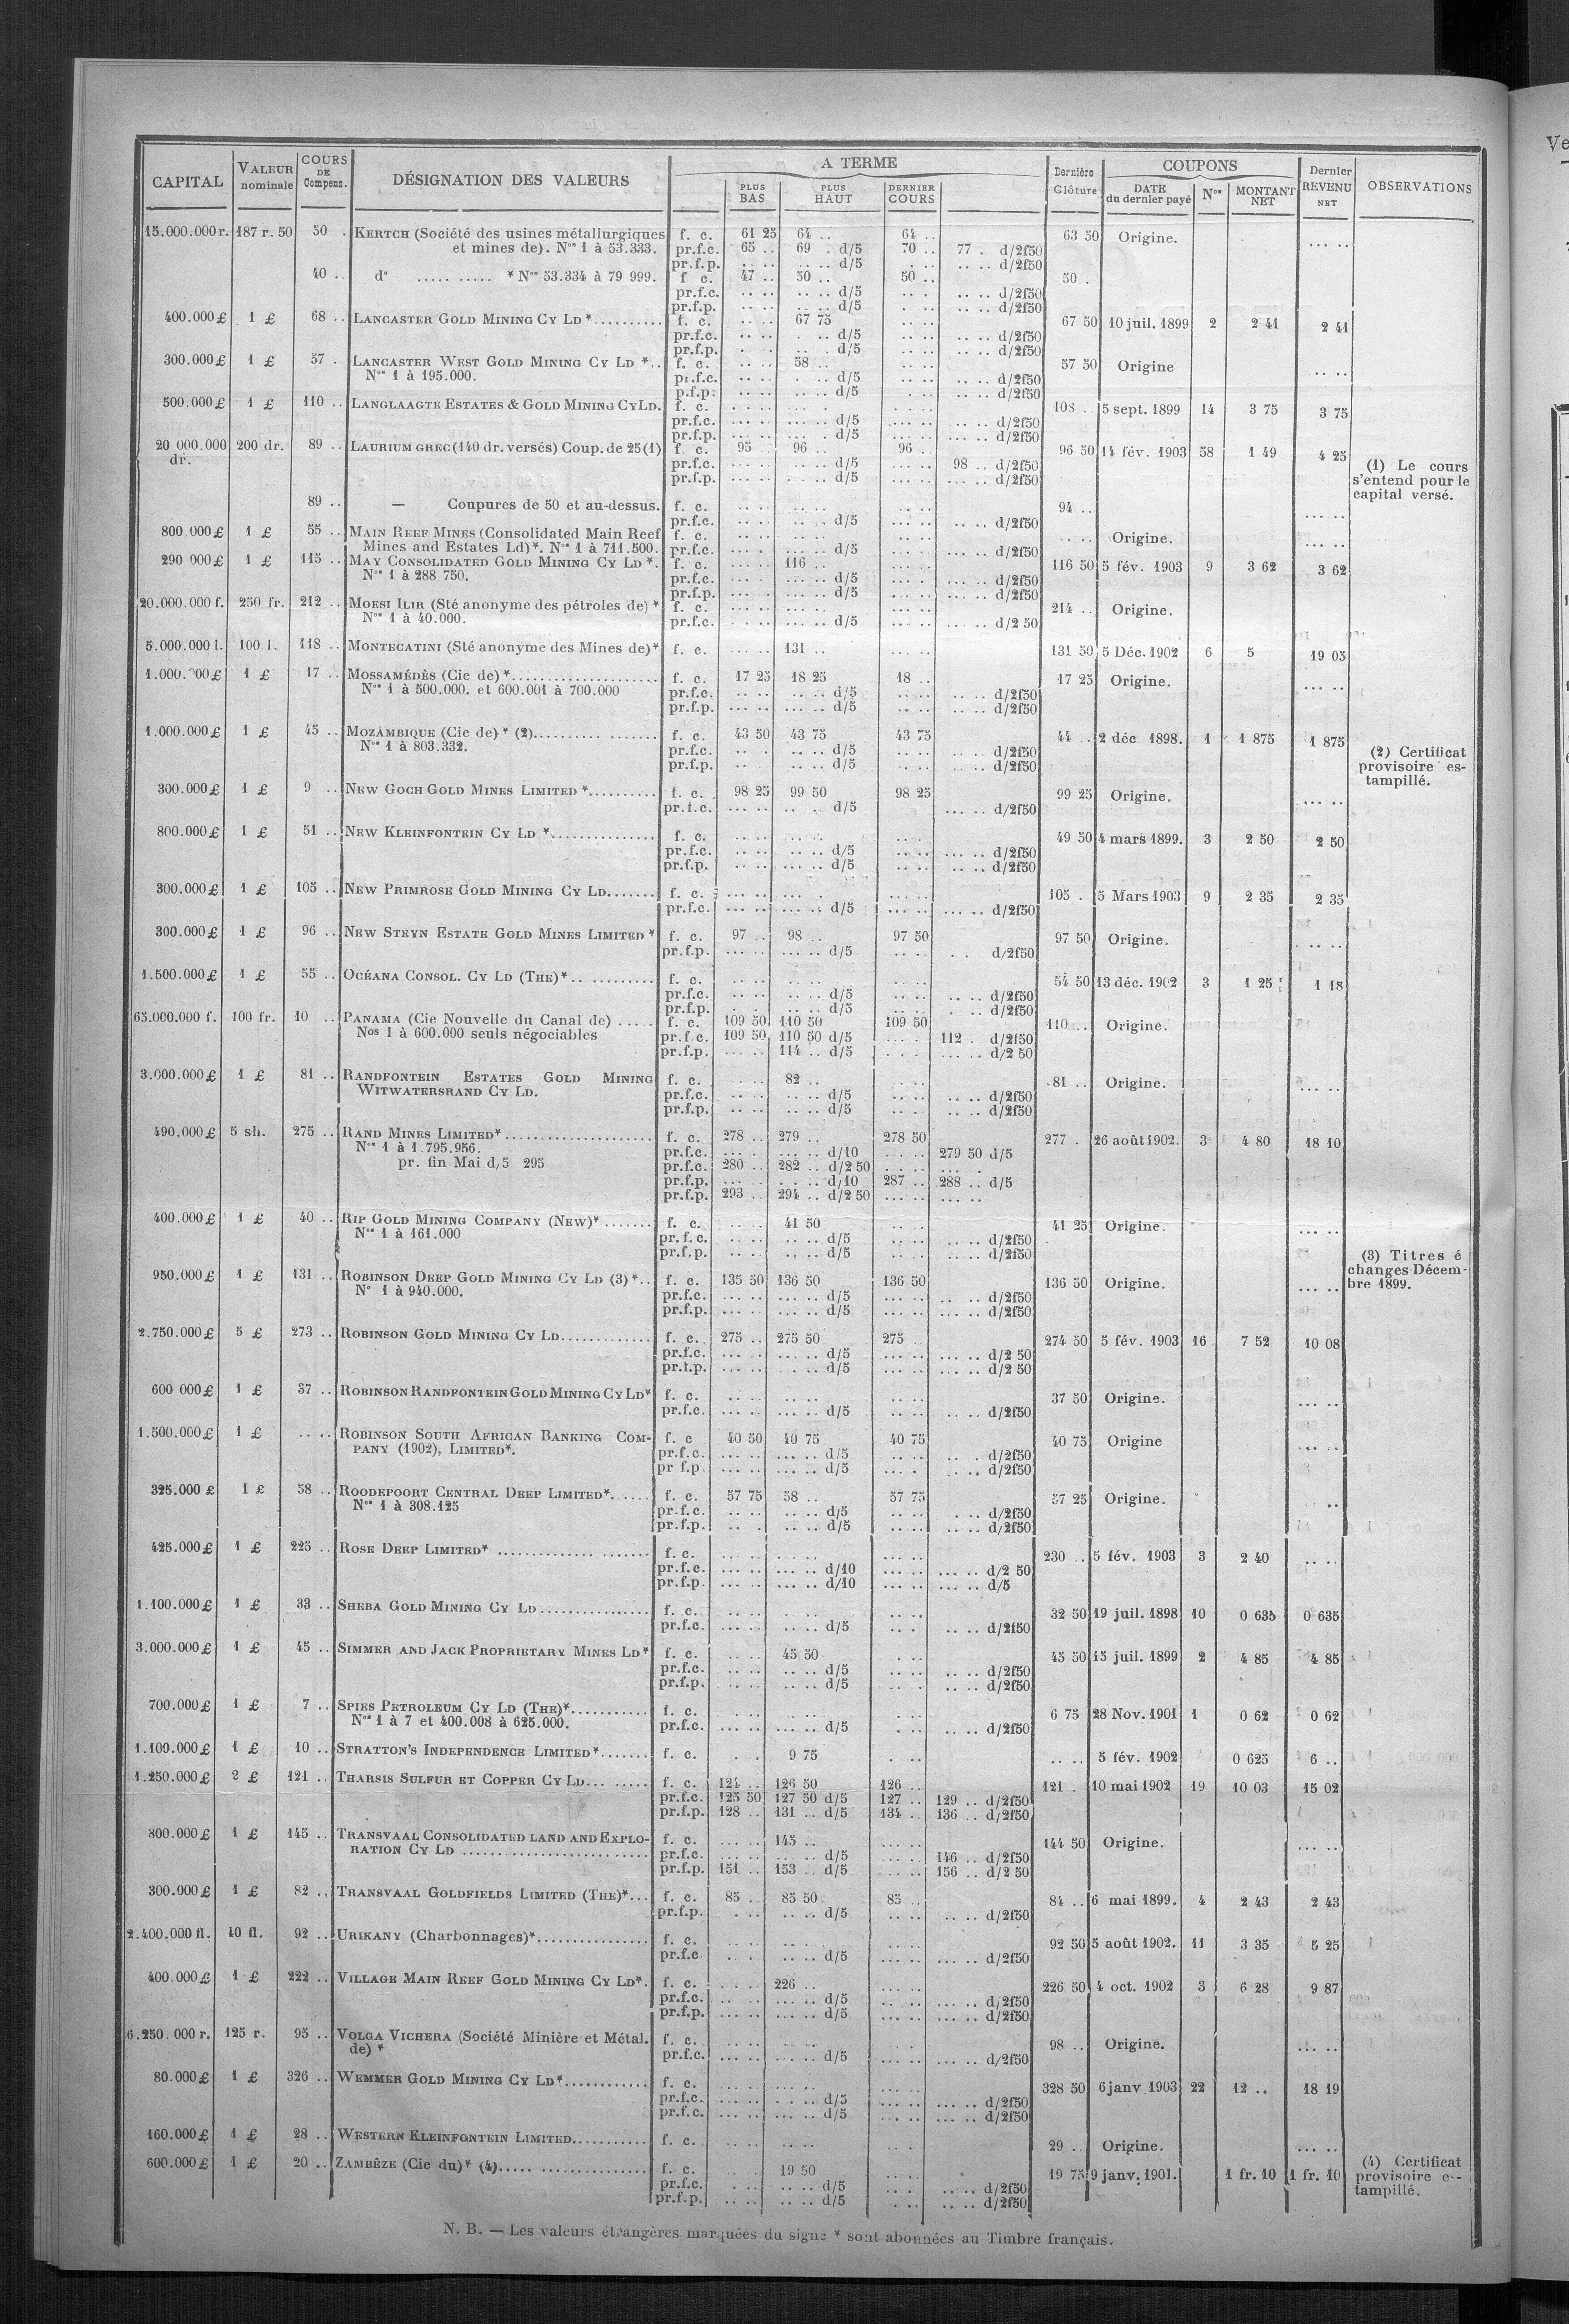 CAPITAL VALEUR nominale COURS DE Compens. DÉSIGNATION DES VALEURS A TERME PLUS BAS PLUS HAUT DERNIER COURS Dernière Clôture COUPONS DATE du dernier payé Nos MONTANT NET Dernier REVENU NET OBSERVATIONS
15.000.000 r. 187 r. 50 50 . KERTCH (Société des usines métallurgiques f. c. 61 25 64 .. 64 .. 63 50 Origine. ... ..
et mines de). Nos 1 à 53.333. pr.f.c. 65 .. 69 . d/5 70 .. 77 . d/2f50
pr.f.p. .. .. .. .. d/5 . .. .. .. d/2f50
40 .. do ..... ..... * Nos 53.334 à 79 999. f c. 47 .. 50 .. 50 .. 50 .
pr.f.c. .. .. .. .. d/5 .. . .. .. d/2f50
pr.f.p. .. .. .. .. d/5 .. .. .. .. d/2f50
400.000 £ 1 £ 68 .. LANCASTER GOLD MINING CY LD *.......... f. c. .. .. 67 75 .. .. 67 50 10 juil. 1899 2 2 41 2 41
pr.f.c. .. .. . .. d/5 .. .. .. .. d/2f50
pr.f.p. . . .. . d/5 .. .. .. .. d/2f50
300.000 £ 1 £ 57 .. LANCASTER WEST GOLD MINING CY LD *.. f. c. .. .. 58 .. .. .. 57 50 Origine .. ..
Nos 1 à 195.000. pr.f.c. .. .. . .. d/5 .. .. .. .. d/2f50
p.f.p. .. .. .. .. d/5 .. .. .. .. d/2f50
500.000 £ 1 £ 110 .. LANGLAAGTE ESTATES & GOLD MINING CY LD. f. c. . .. .. ... . . .. .. 108 .. 5 sept. 1899 14 3 75 3 75
pr.f.c. ... .. ... .. d/5 ... .. ... .. d/2f50
pr.f.p. ... .. ... . d/5 ... .. ... .. d/2f50
20 000.000 200 dr. 89 .. LAURIUM GREC (140 dr. versés) Coup. de 25 (1) f. c. 95 .. 96 .. 96 .. 96 50 14 fév. 1903 58 1 49 4 25
dr. pr.f.c. ... .. .. .. d/5 ... .. 98 .. d/2f50 (1) Le cours
pr.f.p. ... .. . .. d/5 ... .. ... .. d/2f50 s'entend pour le
capital versé.
89 .. — Coupures de 50 et au-dessus. f. c. .. .. .. .. .. .. 94 .. ... ..
pr.f.c. .. .. .. .. d/5 .. .. .. .. d/2f50
800 000 £ 1 £ 55 .. MAIN REEF MINES (Consolidated Main Reef f. c. .. .. .. .. .. .. .. .. Origine. ... ..
Mines and Estates Ld)*. Nos 1 à 711.500. pr.f.c. ... . ... .. d/5 ... .. ... .. d/2f50
290 000 £ 1 £ 115 .. MAY CONSOLIDATED GOLD MINING CY LD *. f. c. ... .. 116 .. ... .. 116 50 5 fév. 1903 9 3 62 3 62
Nos 1 à 288 750. pr.f.c. ... .. ... .. d/5 ... . ... .. d/2f50
pr.f.p. ... .. ... .. d/5 ... .. ... .. d/2f50
20.000.000 f. 250 fr. 212 .. MOESI ILIR (Sté anonyme des pétroles de) * f. c. ... .. ... .. ... .. 214 .. Origine.
Nos 1 à 40.000. pr.f.c. . .. .. ... .. d/5 ... .. ... .. d/2 50
5.000.000 l. 100 l. 118 .. MONTECATINI (Sté anonyme des Mines de)* f. c. ... .. 131 .. ... .. 131 50 5 Déc. 1902 6 5 19 05
1.000.000 £ 1 £ 17 .. MOSSAMÉDÈS (Cie de) *..................... f. c. 17 25 18 25 18 .. 17 25 Origine. ... ..
Nos 1 à 500.000. et 600.001 à 700.000 pr.f.c. .. .. .. .. d/5 .. .. .. .. d/2f50
pr.f.p. ... .. ... .. d/5 .. .. .. .. d/2f50
1.000.000 £ 1 £ 45 .. MOZAMBIQUE (Cie de) * (2).......... ....... f. c. 43 50 43 75 43 75 44 .. 2 déc 1898. 1 1 875 1 875
Nos 1 à 803.332. pr.f.c. .. . .. .. d/5 .. .. .. .. d/2f50 (2) Certificat
pr.f.p. .. .. .. d/5 .. .. .. .. d/2f50 provisoire es-
300.000 £ 1 £ 9 .. NEW GOCH GOLD MINES LIMITED *.......... f. c. 98 25 99 50 98 25 99 25 Origine. ... .. tampillé.
pr.f.c. ... .. .. . d/5 ... .. d/2f50
800.000 £ 1 £ 51 .. NEW KLEINFONTEIN CY LD *............... f. c. .. .. .. .. .. .. 49 50 4 mars 1899. 3 2 50 2 50
pr.f.c. .. .. ... .. d/5 .. .. ... .. d/2f50
pr.f.p. .. .. ... .. d/5 .. .. .. .. d/2f50
300.000 £ 1 £ 105 .. NEW PRIMROSE GOLD MINING CY LD....... f. c. ... .. ... . ... .. 105 . 5 Mars 1903 9 2 35 2 35
pr.f.c. ... .. ... .. d/5 ... .. ... .. d/2f50
300.000 £ 1 £ 96 .. NEW STEYN ESTATE GOLD MINES LIMITED * f. c. 97 .. 98 .. 97 50 97 50 Origine. . .. ..
pr.f.p. ... .. ... .. d/5 .. .. . . d/2f50
1.500.000 £ 1 £ 55 .. OCÉANA CONSOL. CY LD (THE) *.. .......... f. c. .. .. .. .. .. .. 54 50 13 déc. 1902 3 1 25 1 18
pr.f.c. .. .. .. .. d/5 .. .. .. .. d/2f50
pr.f.p. . .. .. .. d/5 .. .. . .. d/2f50
65.000.000 f. 100 fr. 10 .. PANAMA (Cie Nouvelle du Canal de) ..... f. c. 109 50 110 50 109 50 110 .. Origine.
Nos 1 à 600.000 seuls négociables pr.f.c. 109 50 110 50 d/5 ... . 112 . d/2f50
pr.f.p. ... .. 114 .. d/5 . . . ... .. d/2 50
3.000.000 £ 1 £ 81 .. RANDFONTEIN ESTATES GOLD MINING f. c. .. .. 82 .. .. .. 81 .. Origine. ... ..
WITWATERSRAND CY LD. pr.f.c. .. .. .. .. d/5 .. .. .. .. d/2f50
pr.f.p. .. .. .. .. d/5 .. .. .. .. d/2f50
490.000 £ 5 sh. 275 .. RAND MINES LIMITED*..................... f. c. 278 .. 279 .. 278 50 277 . 26 août 1902. 3 4 80 18 10
Nos 1 à 1.795.956. pr.f.c. ... . ... .. d/10 ... .. 279 50 d/5
pr. fin Mai d/5 295 pr.f.c. 280 .. 282 .. d/2 50 . .. .. ... .
pr.f.p. ... .. . .. d/10 287 .. 288 .. d/5
pr.f.p. 293 .. 294 .. d/2 50 ... .. ... ..
400.000 £ 1 £ 40 .. RIP GOLD MINING COMPANY (NEW)* ....... f. c. .. .. 41 50 .. .. 41 25 Origine. ... ..
Nos 1 à 161.000 pr.f.c. .. .. .. .. d/5 .. .. .. .. d/2f50
pr.f.p. .. .. .. .. d/5 .. .. .. .. d/2f50 (3) Titres é
950.000 £ 1 £ 131 .. ROBINSON DEEP GOLD MINING CY LD (3) *.. f. c. 135 50 136 50 136 50 136 50 Origine. ... .. changes Décem-
No 1 à 940.000. pr.f.c. ... .. ... .. d/5 ... .. .. .. d/2f50 bre 1899.
pr.f.p. ... .. ... .. d/5 ... .. ... .. d/2f50
2.750.000 £ 5 £ 273 .. ROBINSON GOLD MINING CY LD............. f. c. 275 .. 275 50 275 274 50 5 fév. 1903 16 7 52 10 08
pr.f.c. ... .. ... .. d/5 ... .. ... .. d/2 50
pr.f.p. ... .. . .. d/5 ... .. ... .. d/2 50
600 000 £ 1 £ 37 .. ROBINSON RANDFONTEIN GOLD MINING CY LD* f. c. .. .. .. .. .. .. 37 50 Origine. ... ..
pr.f.c. ... .. ... .. d/5 ... .. .. .. d/2f50
1.500.000 £ 1 £ .. .. ROBINSON SOUTH AFRICAN BANKING COM- f. c 40 50 40 75 40 75 40 75 Origine ... ..
PANY (1902), LIMITED*. pr.f.c. ... .. ... .. d/5 .. .. .. . d/2f50
pr f.p. ... .. ... .. d/5 ... . . .. d/2f50
325.000 £ 1 £ 58 .. ROODEPOORT CENTRAL DEEP LIMITED*...... f. c. 57 75 58 .. 57 75 57 25 Origine. ..
Nos 1 à 308.125 pr.f.c. .. .. .. .. d/5 .. .. . .. d/2f50
pr.f.p. .. . .. .. d/5 .. .. .. .. d/2f50
425.000 £ 1 £ 225 .. ROSE DEEP LIMITED* ............. ....... f. c. ... .. ... .. ... .. 230 .. 5 fév. 1903 3 2 40 .. ..
pr.f.c. ... .. ... .. d/10 ... .. ... .. d/2 50
pr.f.p. ... .. ... .. d/10 ... .. ... .. d/5
1.100.000 £ 1 £ 33 .. SHEBA GOLD MINING CY LD................ f. c. .. .. .. .. .. .. 32 50 19 juil. 1898 10 0 635 0 635
pr.f.c. .. .. .. .. d/5 .. . .. .. d/2f50
3.000.000 £ 1 £ 45 .. SIMMER AND JACK PROPRIETARY MINES LD* f. c. .. .. 45 50 . .. 45 50 15 juil. 1899 2 4 85 4 85
pr.f.c. .. .. .. .. d/5 .. .. .. .. d/2f50
pr.f.p. .. .. .. .. d/5 .. .. .. .. d/2f50
700.000 £ 1 £ 7 .. SPIES PETROLEUM CY LD (THE)*........... f. c. . .. .. .. .. .. 6 75 28 Nov. 1901 1 0 62 0 62
Nos 1 à 7 et 400.008 à 625.000. pr.f.c. .. .. ... .. d/5 . .. .. .. d/2f50
1.100.000 £ 1 £ 10 .. STRATTON'S INDEPENDENCE LIMITED*....... f. c. . . 9 75 . .. .. .. 5 fév. 1902 0 625 6 ..
1.250.000 £ 2 £ 121 .. THARSIS SULFUR ET COPPER CY LD... ...... f. c. 124 .. 126 50 126 .. 121 . 10 mai 1902 19 10 03 15 02
pr.f.c. 125 50 127 50 d/5 127 .. 129 .. d/2f50
pr.f.p. 128 .. 131 .. d/5 134 .. 136 .. d/2f50
800.000 £ 1 £ 145 .. TRANSVAAL CONSOLIDATED LAND AND EXPLO- f. c. ... .. 145 .. ... .. 144 50 Origine. ... ..
RATION CY LD .......................... pr.f.c. ... .. ... .. d/5 ... .. 146 .. d/2f50
pr.f.p. 151 .. 153 .. d/5 ... .. 156 .. d/2 50
300.000 £ 1 £ 82 .. TRANSVAAL GOLDFIELDS LIMITED (THE)*... f. c. 85 .. 85 50 85 .. 84 .. 6 mai 1899. 4 2 43 2 43
pr.f.p. . .. .. .. d/5 .. .. .. .. d/2f50
2.400.000 fl. 40 fl. 92 .. URIKANY (Charbonnages)*................ f. c. .. .. .. .. .. .. 92 50 5 août 1902. 11 3 35 5 25
pr.f.c .. . .. .. d/5 .. .. ... .. d/2f50
400.000 £ 1 £ 222 .. VILLAGE MAIN REEF GOLD MINING CY LD*. f. c. . .. . 226 .. ... .. 226 50 4 oct. 1902 3 6 28 9 87
pr.f.c. .. .. ... .. d/5 .. .. ... .. d/2f50
pr.f.p. ... .. ... .. d/5 ... .. ... .. d/2f50
6.250.000 r. 125 r. 95 .. VOLGA VICHERA (Société Minière et Métal. f. c. .. .. .. .. .. . 98 .. Origine. ... ..
de) * pr.f.c. ... .. ... .. d/5 ... .. ... .. d/2f50
80.000 £ 1 £ 326 .. WEMMER GOLD MINING CY LD*............ f. c. ... .. ... .. ... .. 328 50 6 janv 1903 22 12 .. 18 19
pr.f.c. ... .. . .. d/5 ... .. ... .. d/2f50
pr.f.c. ... .. ... .. d/5 ... .. ... .. d/2f50
160.000 £ 1 £ 28 .. WESTERN KLEINFONTEIN LIMITED........... f. c. .. .. .. .. .. . 29 .. Origine. ... ..
600.000 £ 1 £ 20 .. ZAMBÈZE (Cie du)* (4)..... ................. f. c. .. . 19 50 19 75 9 janv. 1901. 1 fr. 10 1 fr. 10 (4) Certificat
pr.f.c. . .. .. .. d/5 .. . .. .. d/2f50 provisoire es-
pr.f.p. .. .. .. .. d/5 . .. .. .. d/2f50 tampillé.
N. B. — Les valeurs étrangères marquées du signe * sont abonnées au Timbre français.
Ve